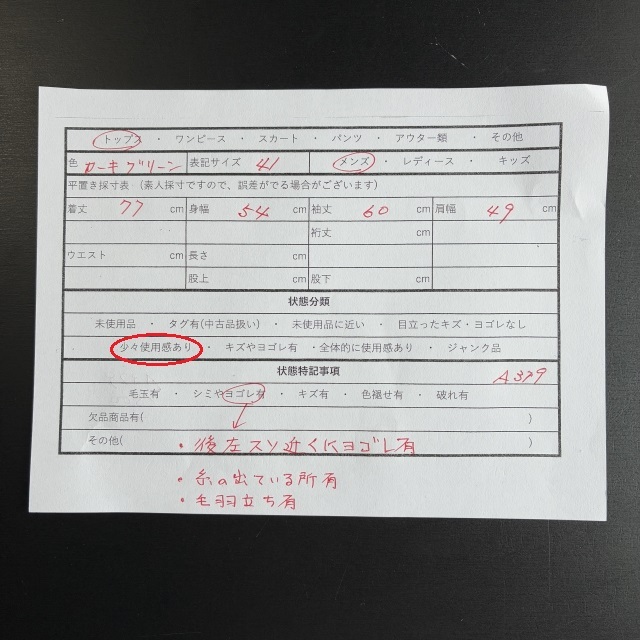 トップス ・ ワンピース ・ スカート ・ パンツ ・ アウター類 ・ その他
色 カーキグリーン 表記サイズ 41 メンズ ・ レディース ・ キッズ
平置き採寸表 (素人採寸ですので、誤差がでる場合がございます)
着丈 77 cm 身幅 54 cm 袖丈 60 cm 肩幅 49 cm
裄丈 cm
ウエスト cm 長さ cm
股上 cm 股下 cm
状態分類
未使用品 ・ タグ有(中古品扱い) ・ 未使用品に近い ・ 目立ったキズ・ヨゴレなし
少々使用感あり ・ キズやヨゴレ有 ・全体的に使用感あり ・ ジャンク品
状態特記事項 A379
毛玉有 ・ シミやヨゴレ有 ・ キズ有 ・ 色褪せ有 ・ 破れ有
欠品商品有( )
その他( ・後左スソ近くにヨゴレ有 )
・糸の出ている所有
・毛羽立ち有